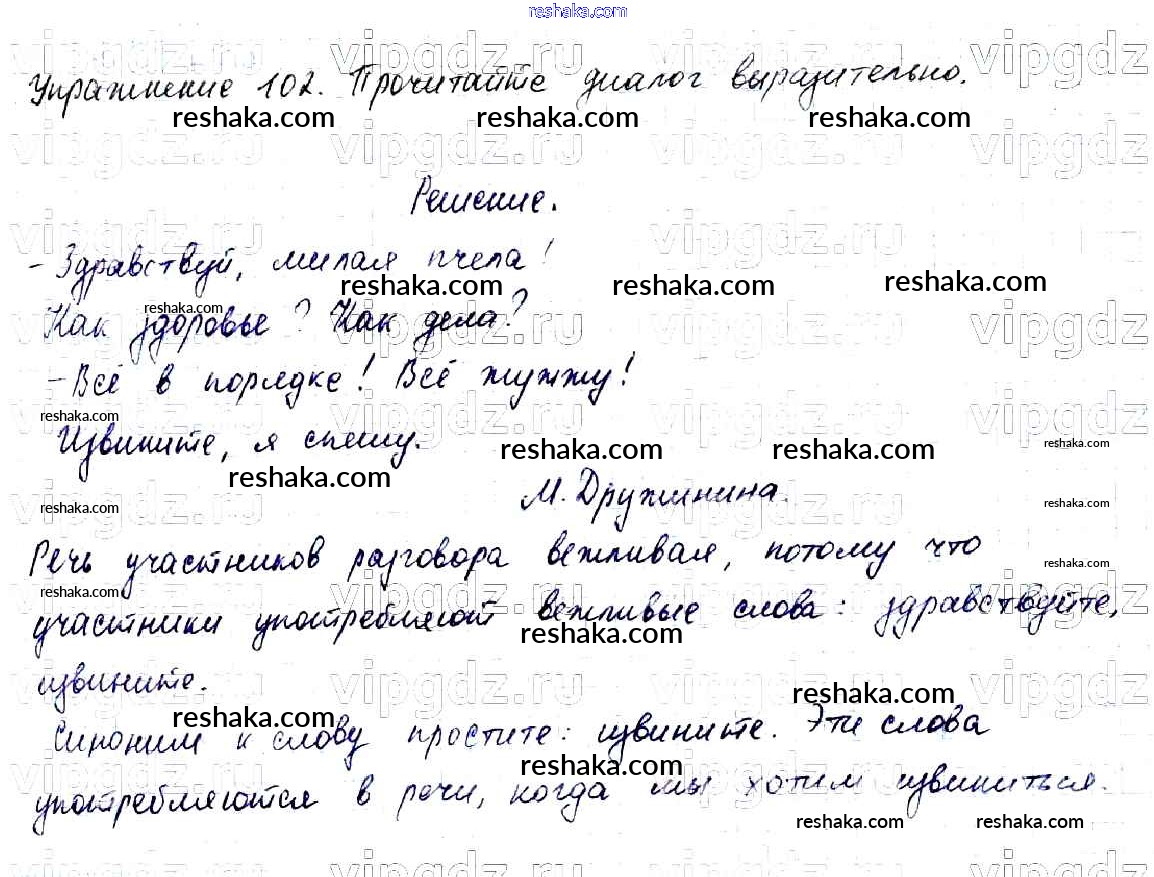 reshaka.com
Упражнение 102. Прочитайте диалог выразительно.
Решение.
- Здравствуй, милая пчела!
Как здоровье? Как дела?
- Всё в порядке! Всё жужжу!
Извините, я спешу.
М. Дружинина.
Речь участников разговора вежливая, потому что
участники употребляют вежливые слова: здравствуйте,
извините.
Синоним к слову простите: извините. Эти слова
употребляются в речи, когда мы хотим извиниться.